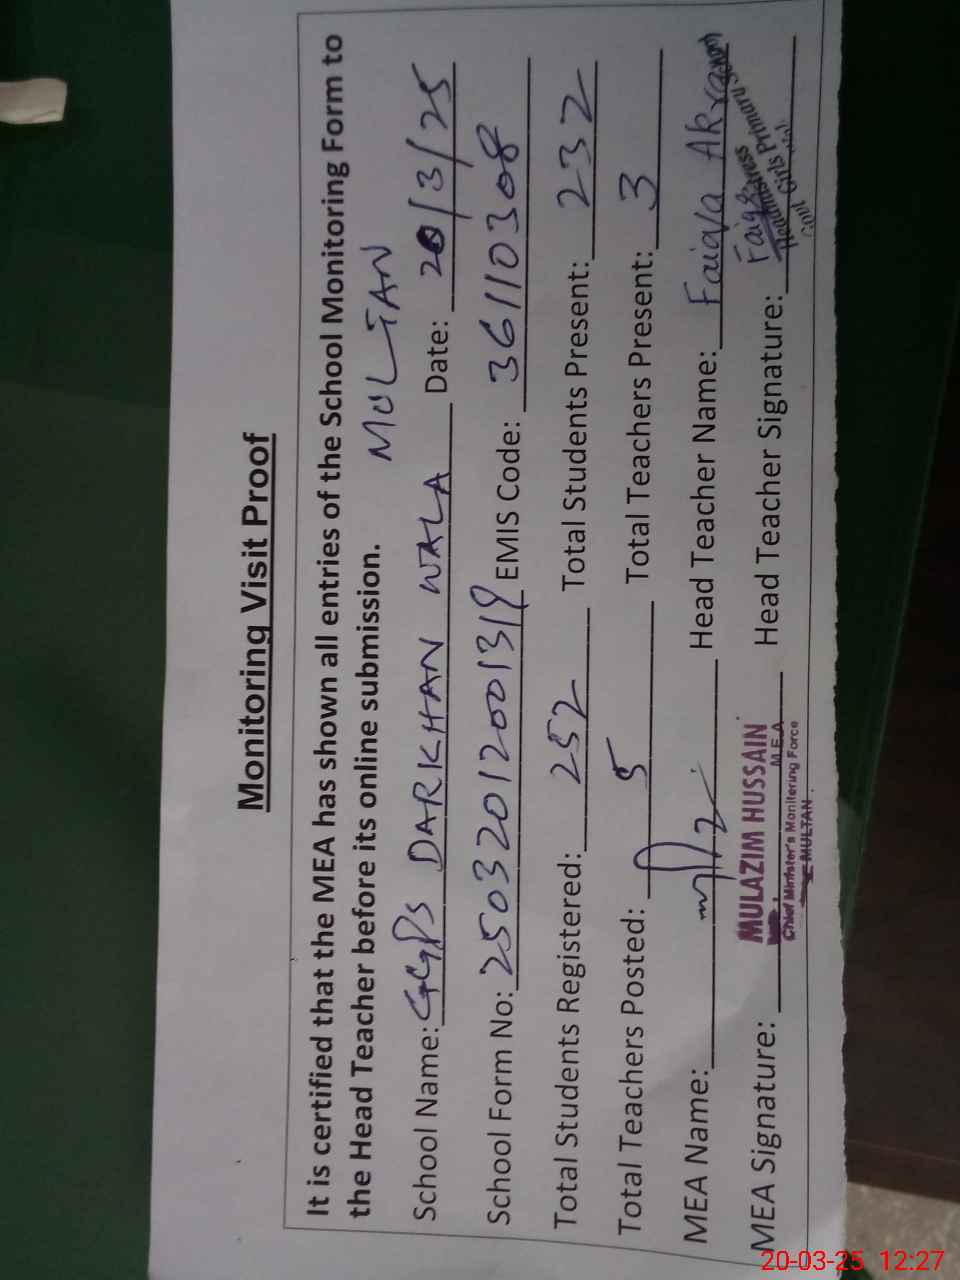 Monitoring Visit Proof
It is certified that the MEA has shown all entries of the School Monitoring Form to
the Head Teacher before its online submission.
MULTAN
School Name: GGPS DARKHAN WALA Date: 20/3/25
School Form No: 25032012001319 EMIS Code: 36110308
Total Students Registered: 252 Total Students Present: 232
Total Teachers Posted: 5 Total Teachers Present: 3
MEA Name: Head Teacher Name: Faiqa Akram
MEA Signature: Head Teacher Signature:
MULAZIM HUSSAIN
M.E.A
Chief Minister's Monitering Force
MULTAN.
Faiqa
Headmistress
Govt Girls Primary
20-03-25 12:27